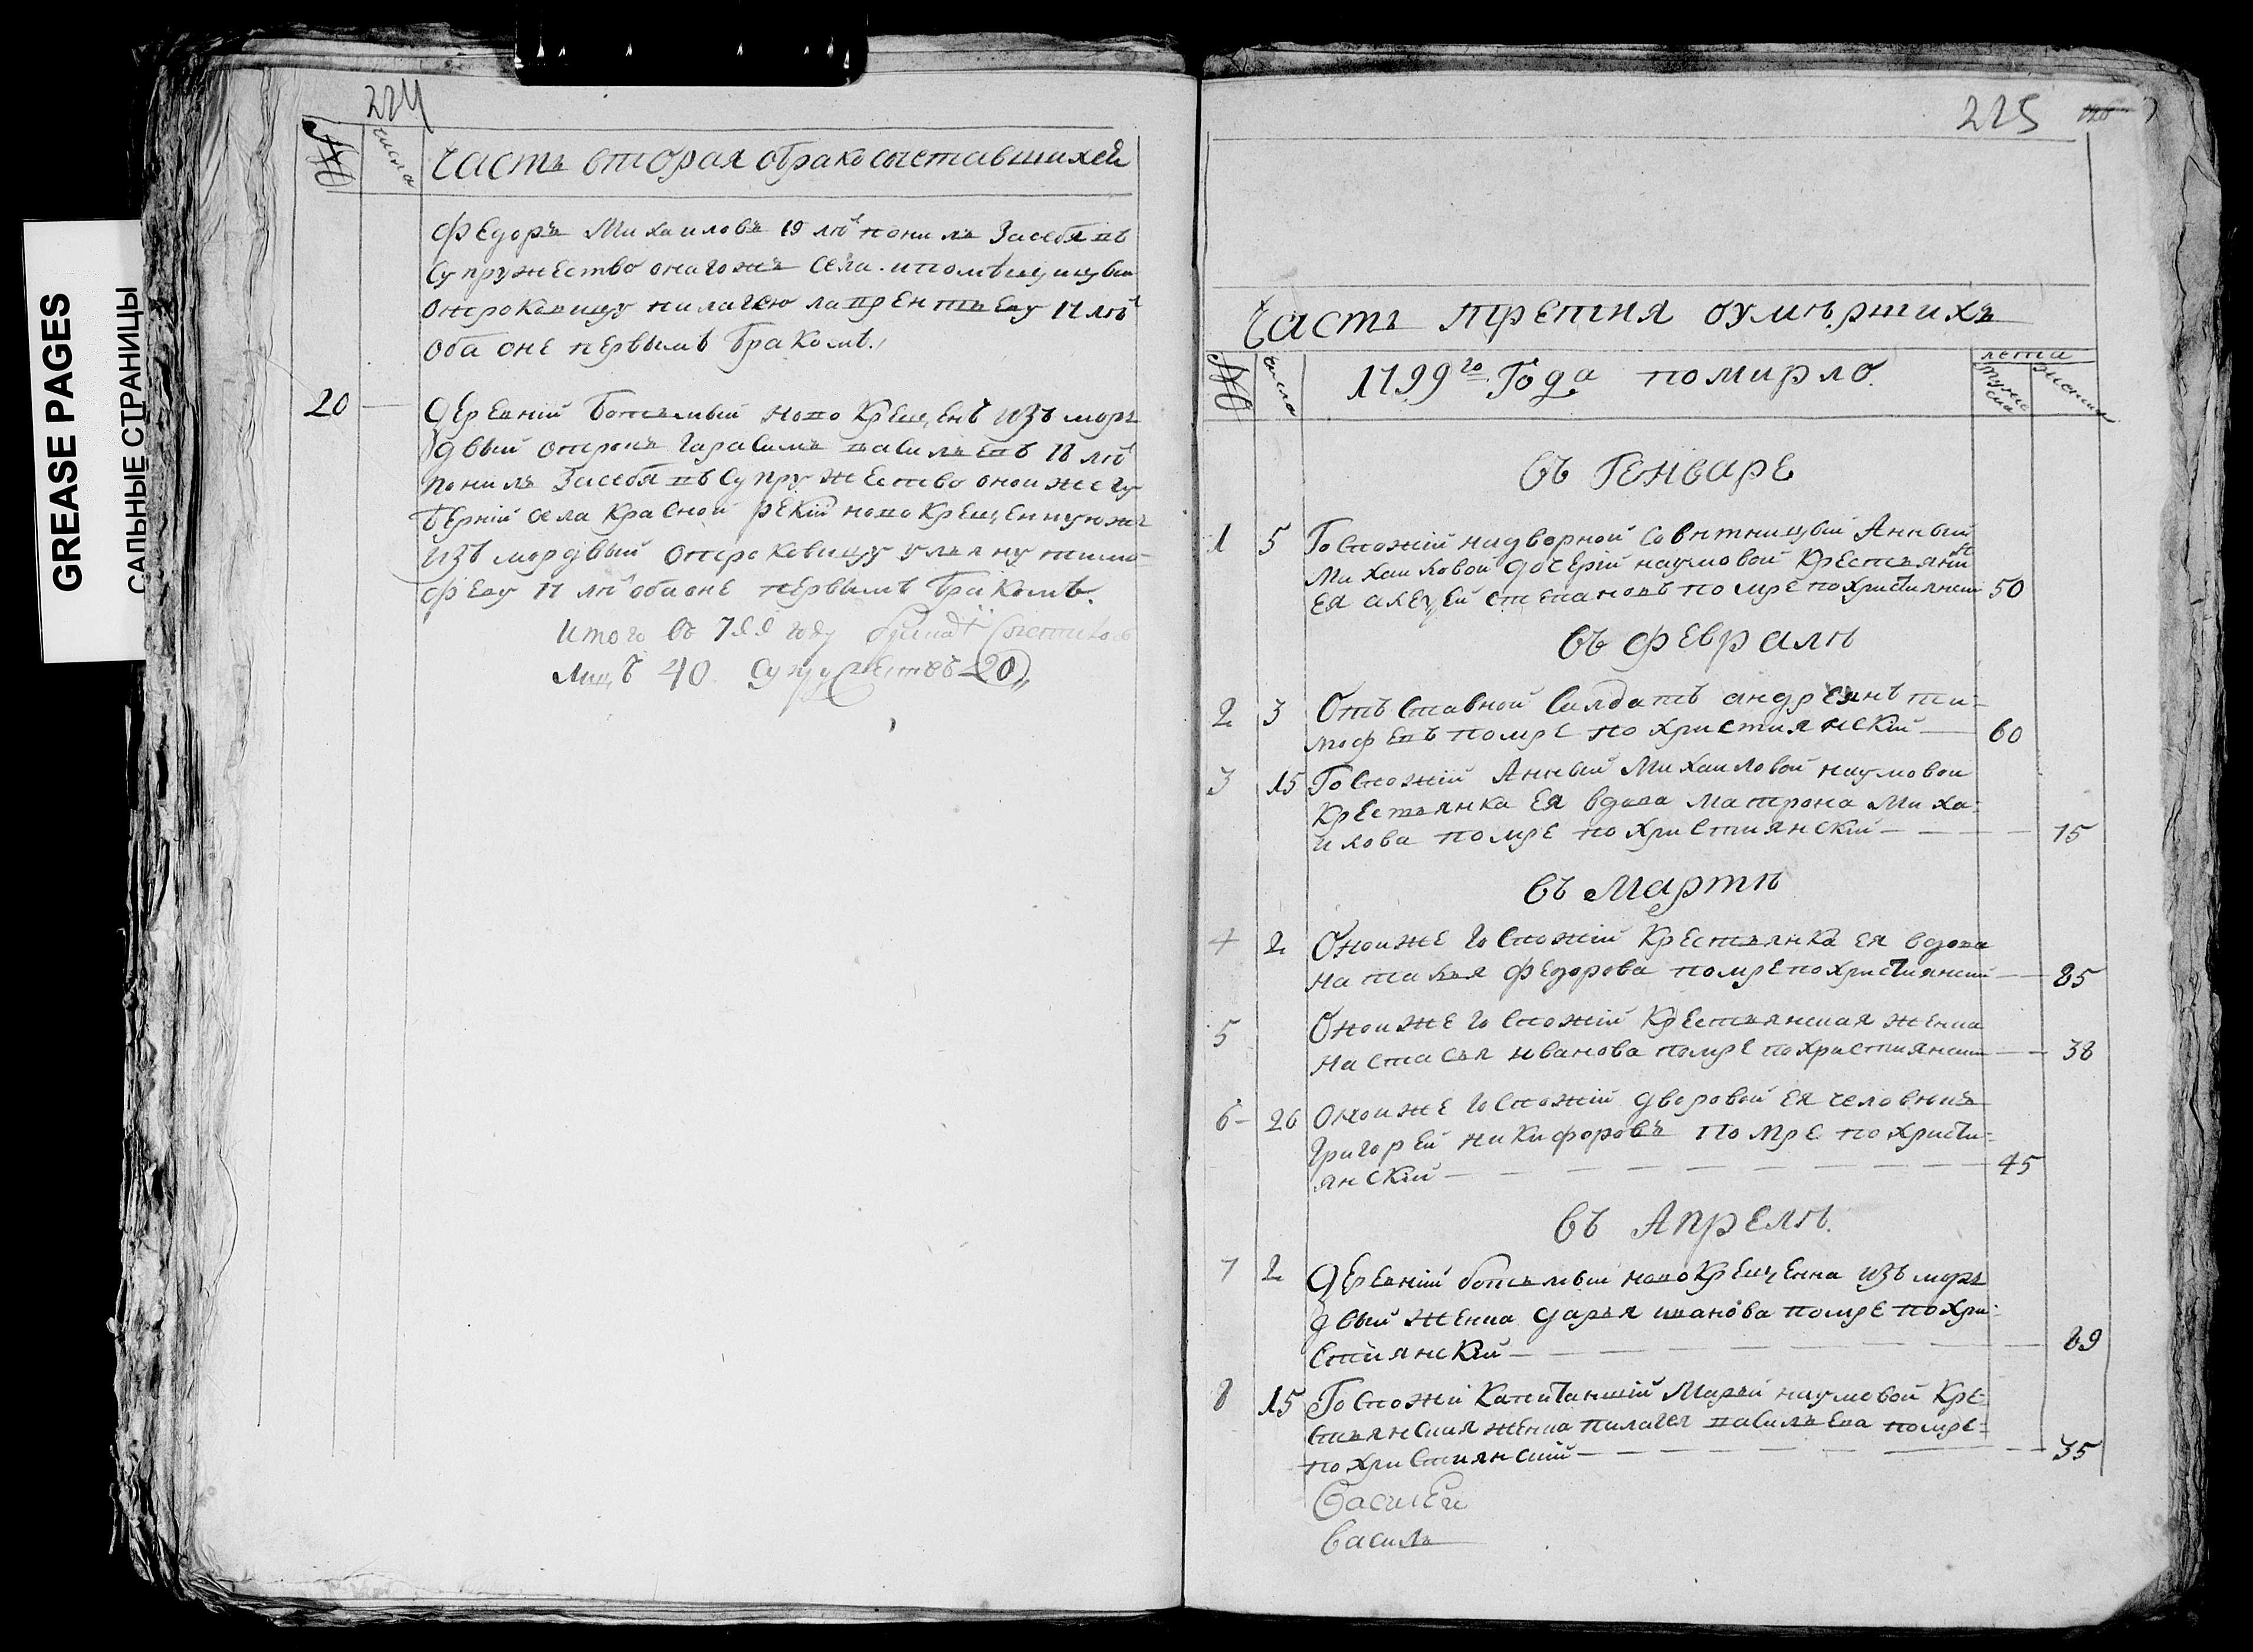 GREASE PAGES
САЛЬНЫЕ СТРАНИЦЫ
224
№
числа
Часть вторая обракосочетавшихся
Федоръ Михаиловъ 19 лѣ понялъ засебя въ
супружество онагожъ села
отроковицу пилагею лаврентьеву 17 лѣ
оба оне первымъ бракомъ
20
Деревнiй новокрещенъ изъ моръ
двый отрокъ гарасимъ васильевъ 18 лѣ
понялъ засебя въ супружество оной же гу
бернiй села Красной рекiй новокрещеннуюжъ
изъ мордвый отроковицу ульяну тимо
фееву 17 лѣ оба оне первымъ бракомъ.
Итого въ 799 году
лицъ 40 супружествъ 20
225
Часть третия оумѣршихъ
№
числа
1799го Года помирло.
лета
мужеска
женска
въ Генваре
1 5 Госпожiй надворной советницый Анный
Михаиловой дочерiй наумовой Крестьянинъ
ея алеѯей степановъ помре похристиянски 50
въ Феврале
2 3 Отъставной Салдатъ андреянъ ти-
мофевъ помре по християнскiй 60
3 15 Госпожiй Анный Михаиловой наумовой
Крестьянка ея вдова Матрона Миха-
илова помре по християнскiй 75
въ Мартѣ
4 2 Онойже госпожiй Крестьянка ея вдова
Наталья Федорова помре похристиянски 85
5 Онойже госпожiй Крестьянская женка
Настасья иванова помре похристиянски 38
6 26 Онойже госпожiй дворовой ея человѣкъ
Григорей никифоровъ помре по христи-
янскiй 45
въ Апрелѣ.
7 2 Деревнiй новокрещенна изъ моръ
двый женка дарья иванова помре похри-
стиянскiй 89
8 15 Госпожи Капитаншiй Марьи наумовой Кре-
стьянская женка пилагея васильева помре-
по християнскiй 35
Василеи
василь